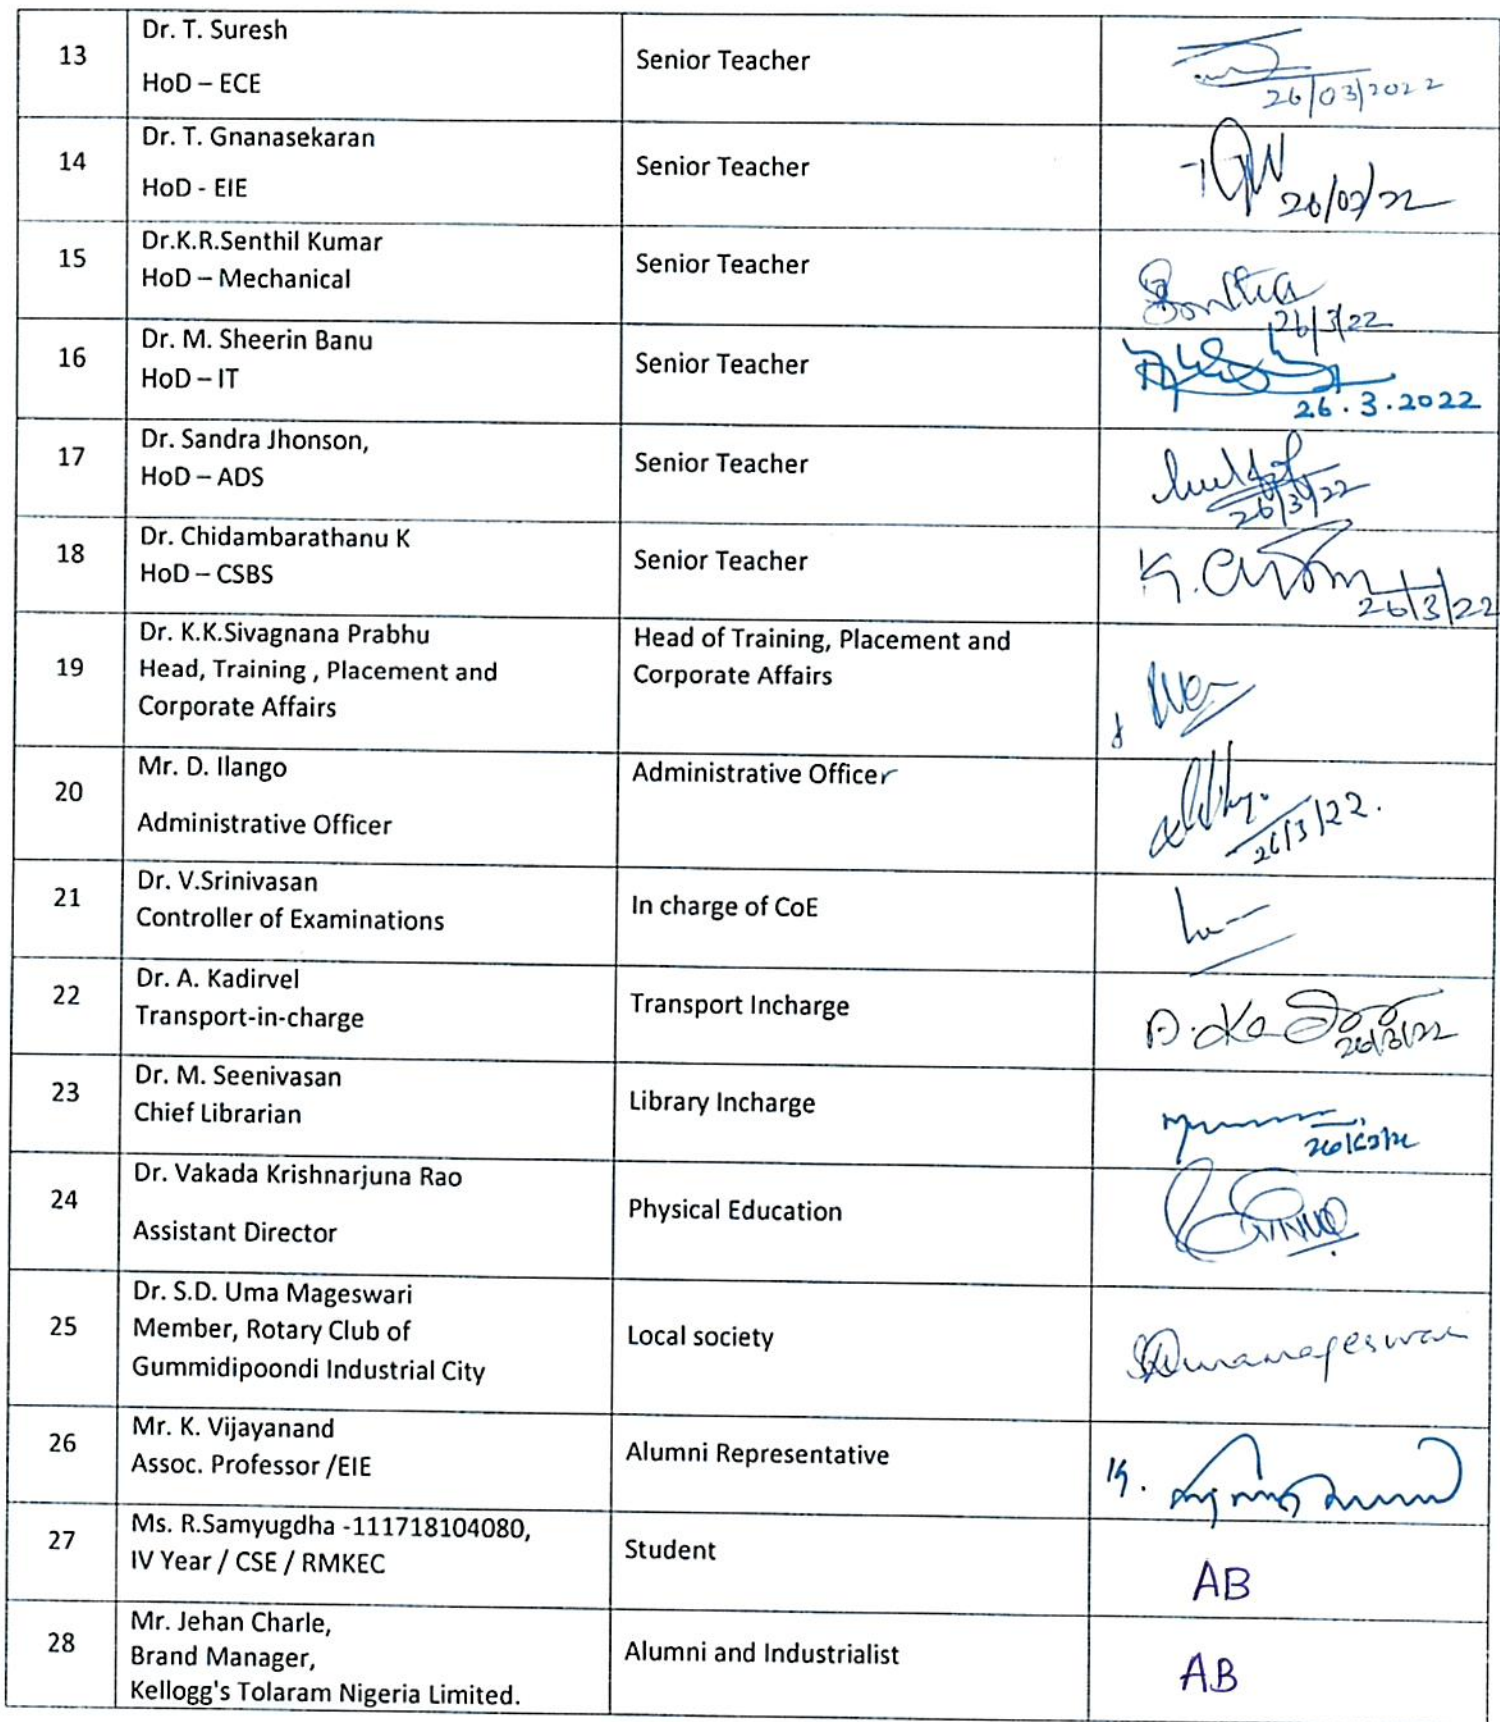 13
Dr. T. Suresh
HoD – ECE
Senior Teacher
26/03/2022
14
Dr. T. Gnanasekaran
HoD - EIE
Senior Teacher
15
Dr.K.R.Senthil Kumar
HoD – Mechanical
Senior Teacher
26/3/22
16
Dr. M. Sheerin Banu
HoD – IT
Senior Teacher
26.3.2022
17
Dr. Sandra Jhonson,
HoD – ADS
Senior Teacher
26/3/22
18
Dr. Chidambarathanu K
HoD – CSBS
Senior Teacher
26/3/22
19
Dr. K.K.Sivagnana Prabhu
Head, Training , Placement and
Corporate Affairs
Head of Training, Placement and
Corporate Affairs
20
Mr. D. Ilango
Administrative Officer
Administrative Officer
26/3/22.
21
Dr. V.Srinivasan
Controller of Examinations
In charge of CoE
22
Dr. A. Kadirvel
Transport-in-charge
Transport Incharge
23
Dr. M. Seenivasan
Chief Librarian
Library Incharge
24
Dr. Vakada Krishnarjuna Rao
Assistant Director
Physical Education
25
Dr. S.D. Uma Mageswari
Member, Rotary Club of
Gummidipoondi Industrial City
Local society
26
Mr. K. Vijayanand
Assoc. Professor /EIE
Alumni Representative
27
Ms. R.Samyugdha -111718104080,
IV Year / CSE / RMKEC
Student
AB
28
Mr. Jehan Charle,
Brand Manager,
Kellogg's Tolaram Nigeria Limited.
Alumni and Industrialist
AB